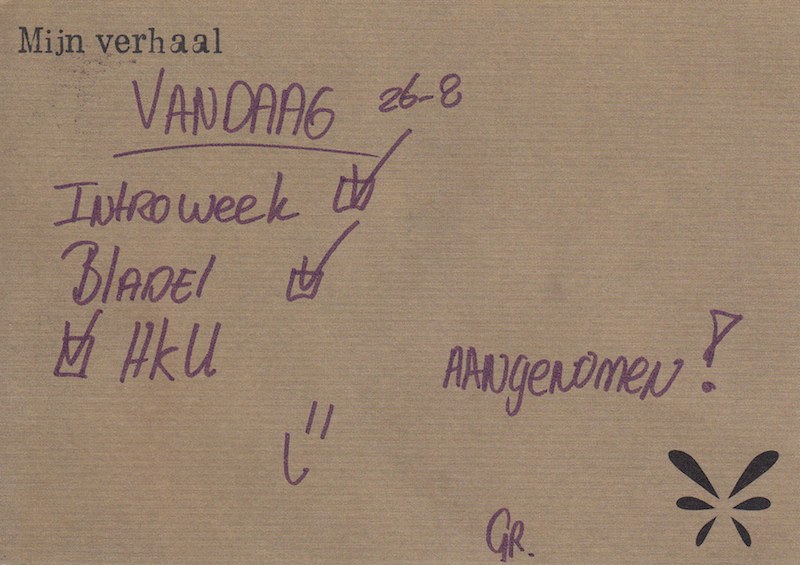 Mijn verhaal
VANDAAG 26-8
INTROWEEK
BLADEL
HKU
AANGENOMEN!
GR.